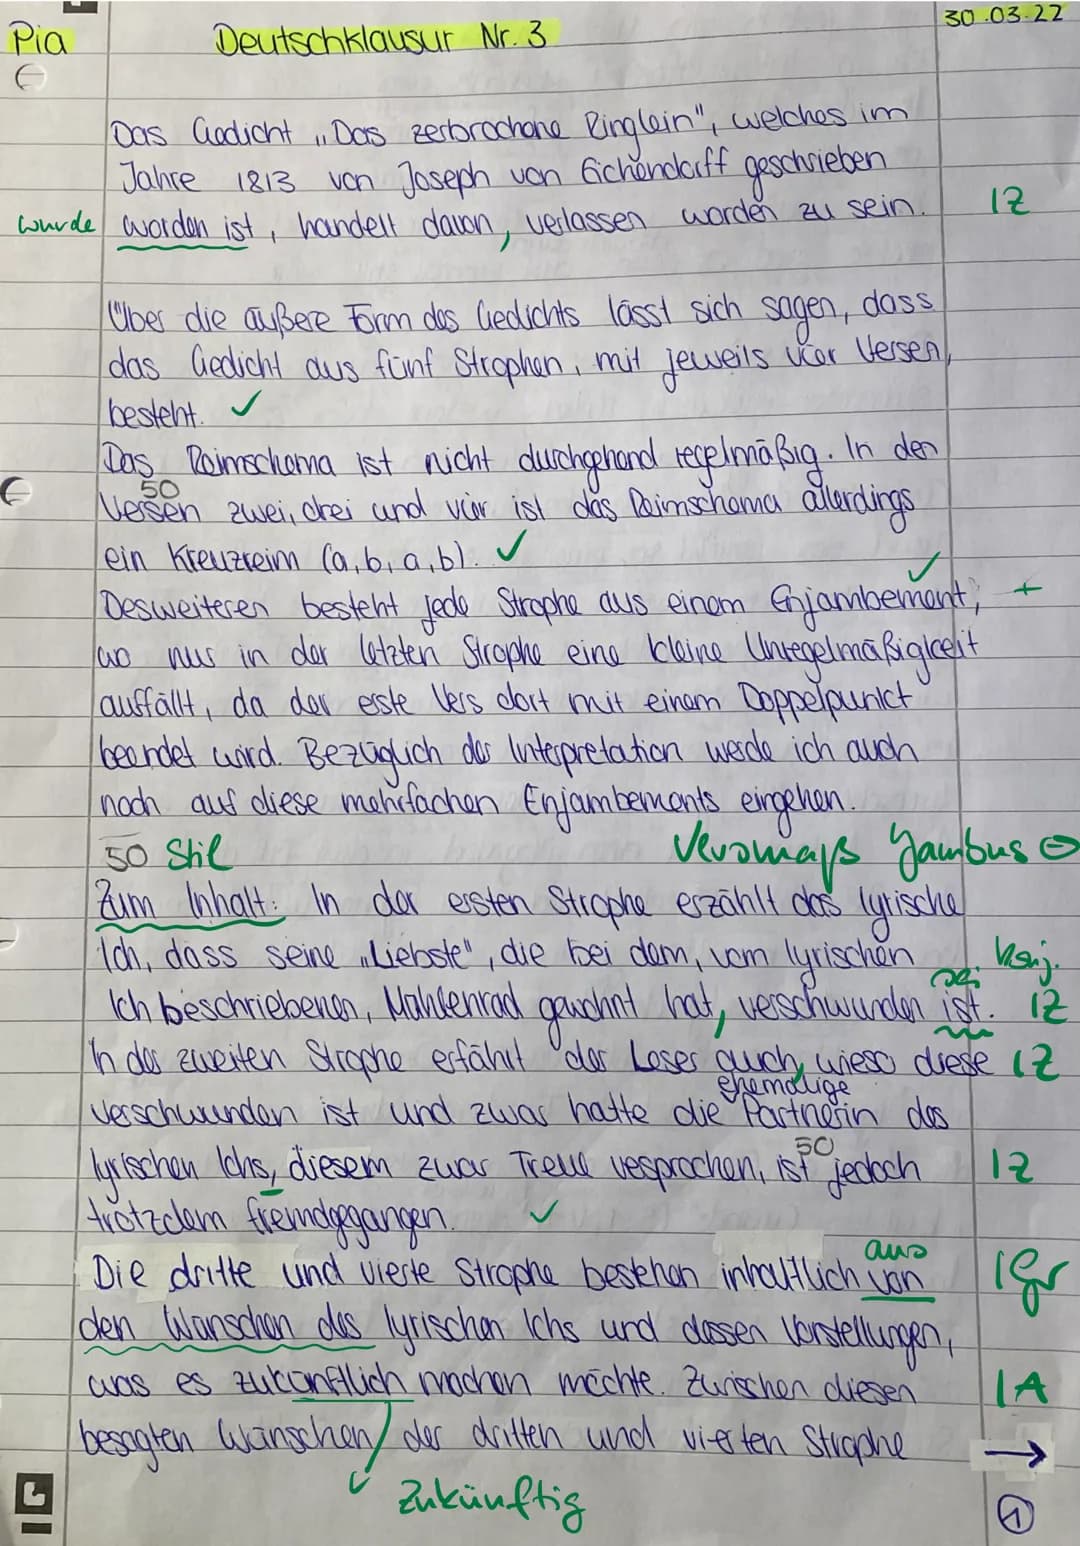 Pia Deutschklausur Nr. 3 30.03.22
Das Gedicht „Das zerbrochene Ringlein", welches im
Jahre 1813 von Joseph von Eichendorff geschrieben
wurde worden ist, handelt davon, verlassen worden zu sein. 1Z
Über die äußere Form des Gedichts lässt sich sagen, dass
das Gedicht aus fünf Strophen, mit jeweils vier Versen,
besteht. ✓
Das Reimschema ist nicht durchgehend regelmäßig. In den
50
Versen zwei, drei und vier ist das Reimschema allerdings
ein Kreuzreim (a, b, a, b). ✓
Desweiteren besteht jede Strophe aus einem Enjambement, ✓ +
wo nur in der letzten Strophe eine kleine Unregelmäßigkeit
auffällt, da der erste Vers dort mit einem Doppelpunkt
beendet wird. Bezüglich der Interpretation werde ich auch
noch auf diese mehrfachen Enjambements eingehen.
50 Stil Versmaß Jambus ⊖
Zum Inhalt: In der ersten Strophe erzählt das lyrische
Ich, dass seine „Liebste", die bei dem, vom lyrischen Konj.
sei
Ich beschriebenen, Mühlenrad gewohnt hat, verschwunden ist. 1Z
In der zweiten Strophe erfährt der Leser auch, wieso diese 1Z
ehemalige
verschwunden ist und zwar hatte die Partnerin des
50
lyrischen Ichs, diesem zwar Treue vesprochen, ist jedoch 1Z
trotzdem fremdgegangen. ✓
aus
Die dritte und vierte Strophe bestehen inhaltlich von 1Gr
den Wünschen des lyrischen Ichs und dessen Vorstellungen,
was es zukünftlich machen möchte. Zwischen diesen 1A
besagten Wünschen der dritten und vierten Strophe →
zukünftig
1